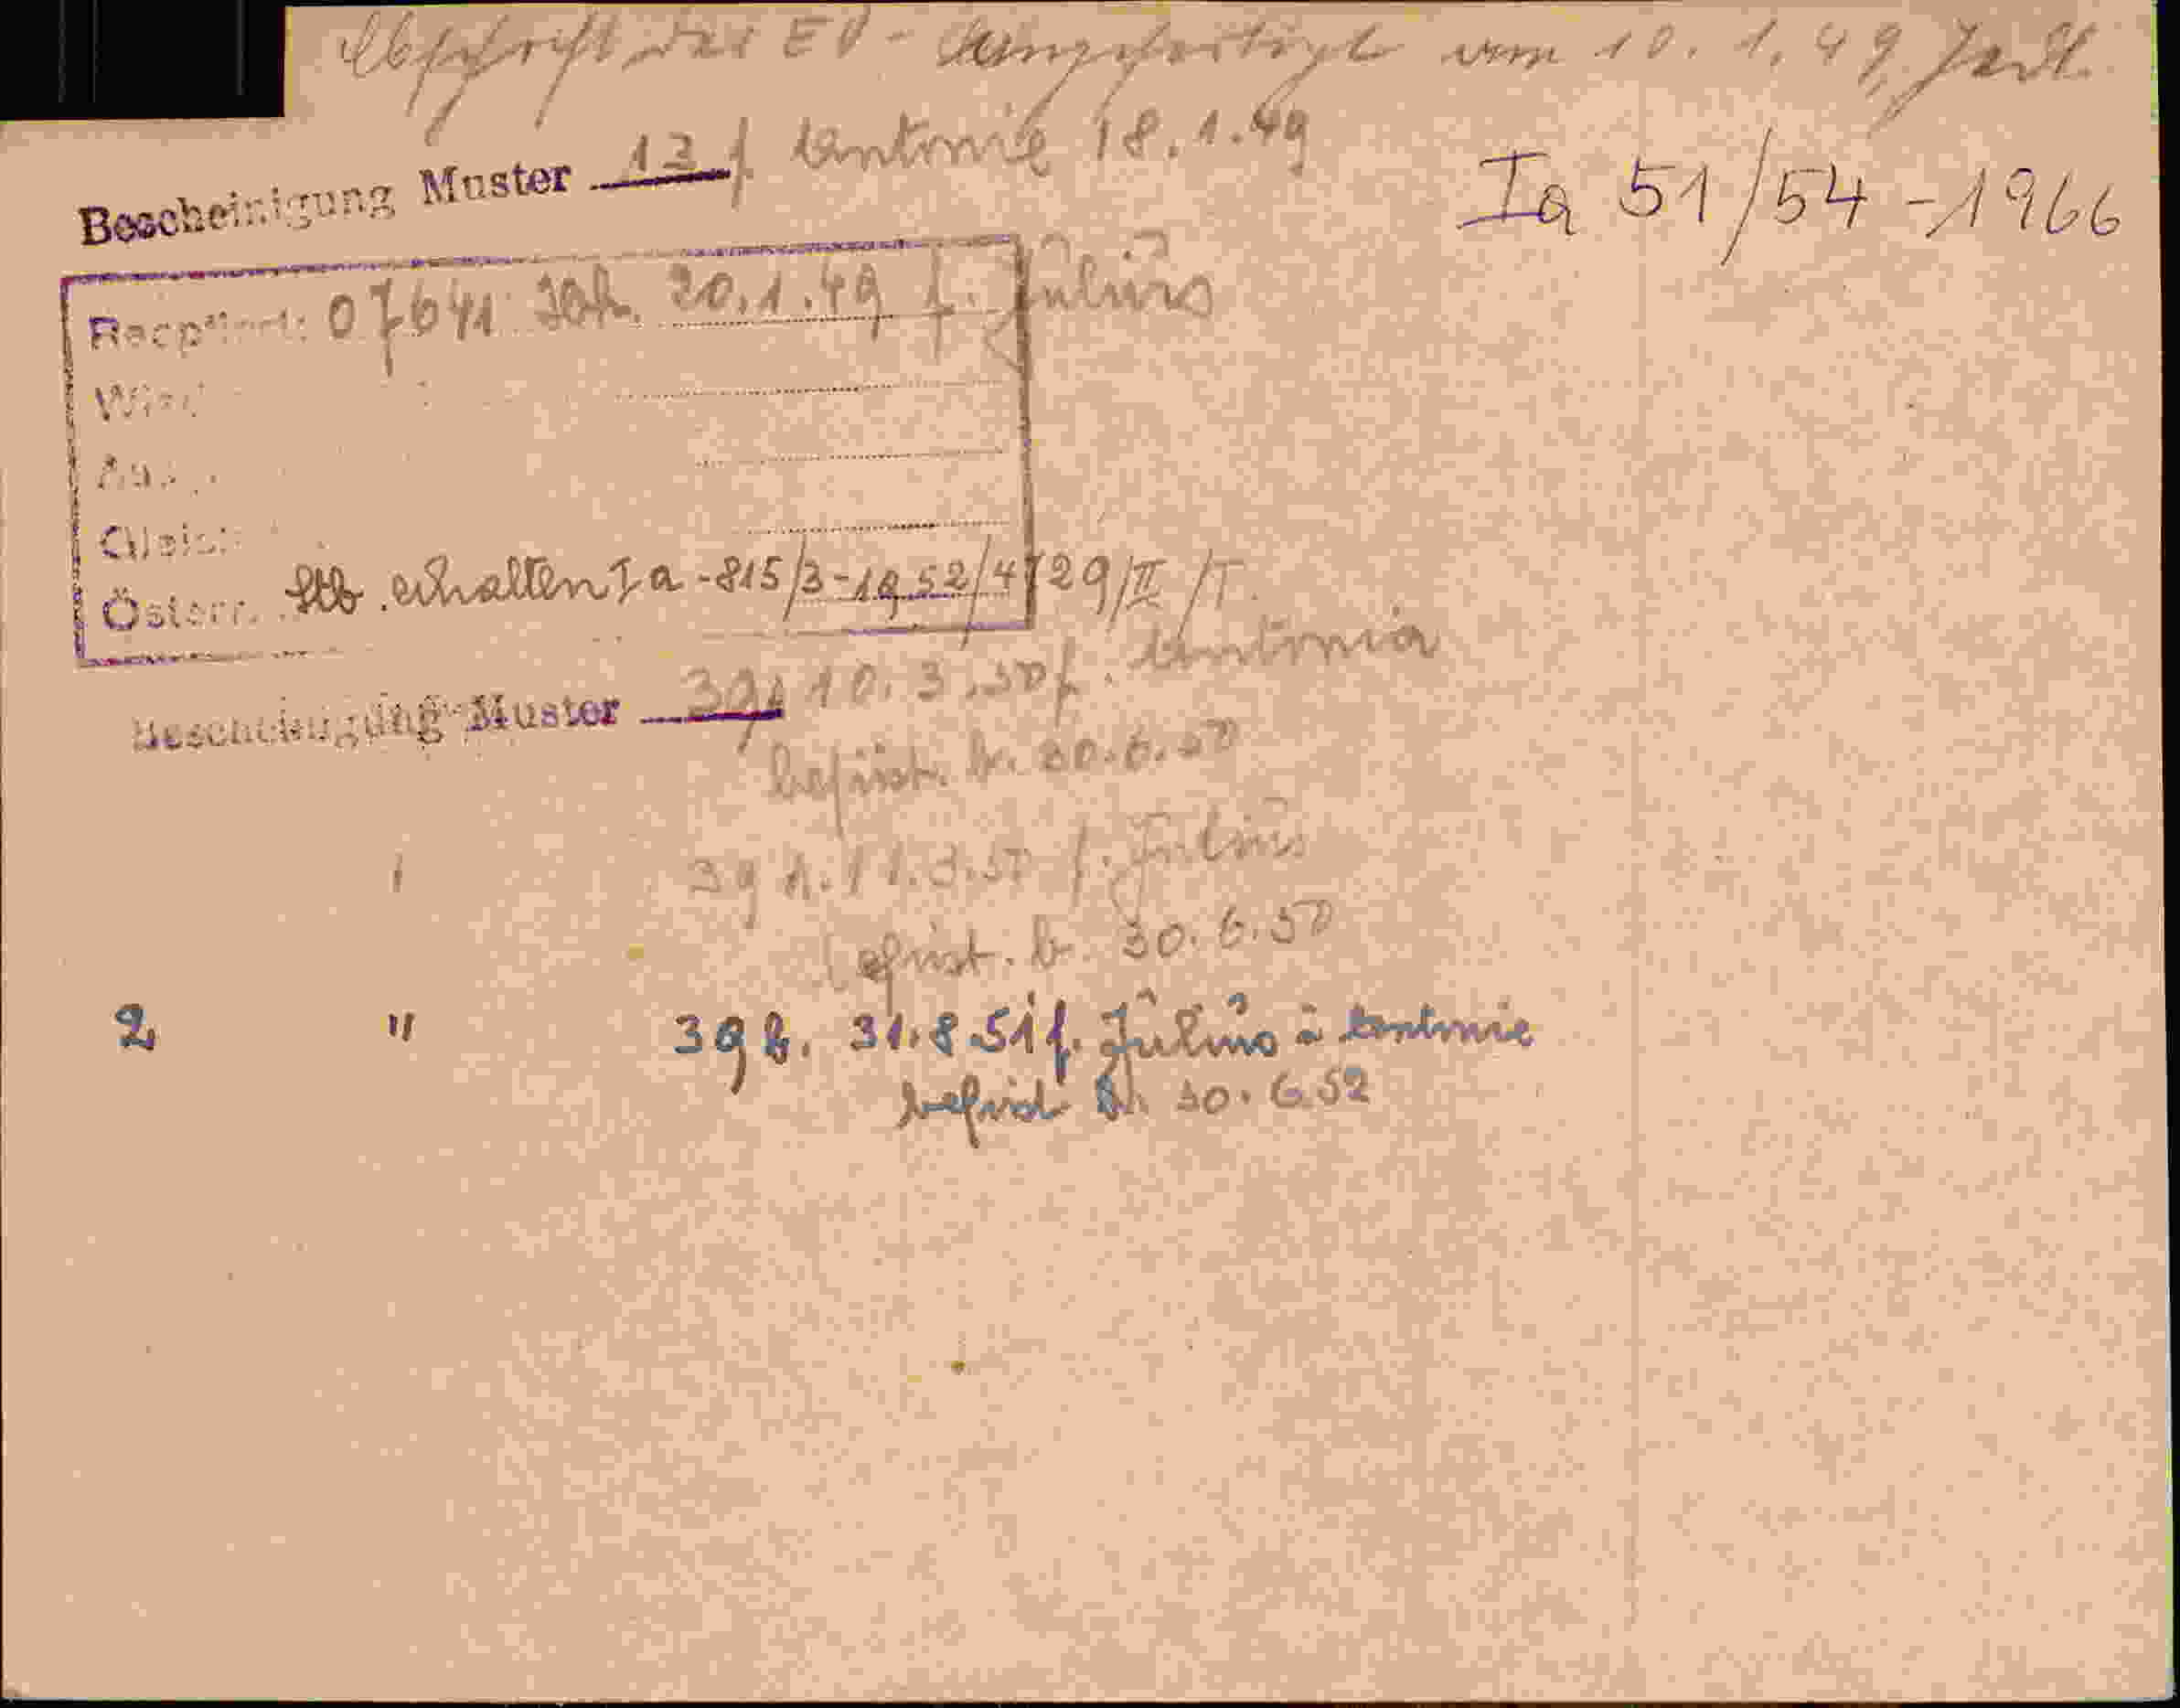 Abschrift der EV- vom 10. 1. 49
Bescheinigung Muster 13 f Antonie 18.1.49
Ia 51/54 - 1966
07641 20.1.49 f. Julius
Österr. Stb. erhalten Ia - 815/3 - 1952/4729/II/T.
Bescheinigung Muster 39 10.3.50 f. Antonia
befrist. b. 30.6.50
39 11.3.50 f. Julius
befrist. b. 30.6.50
2 " 39 31.8.51 f. Julius Antonie
befrist b. 30.6.52